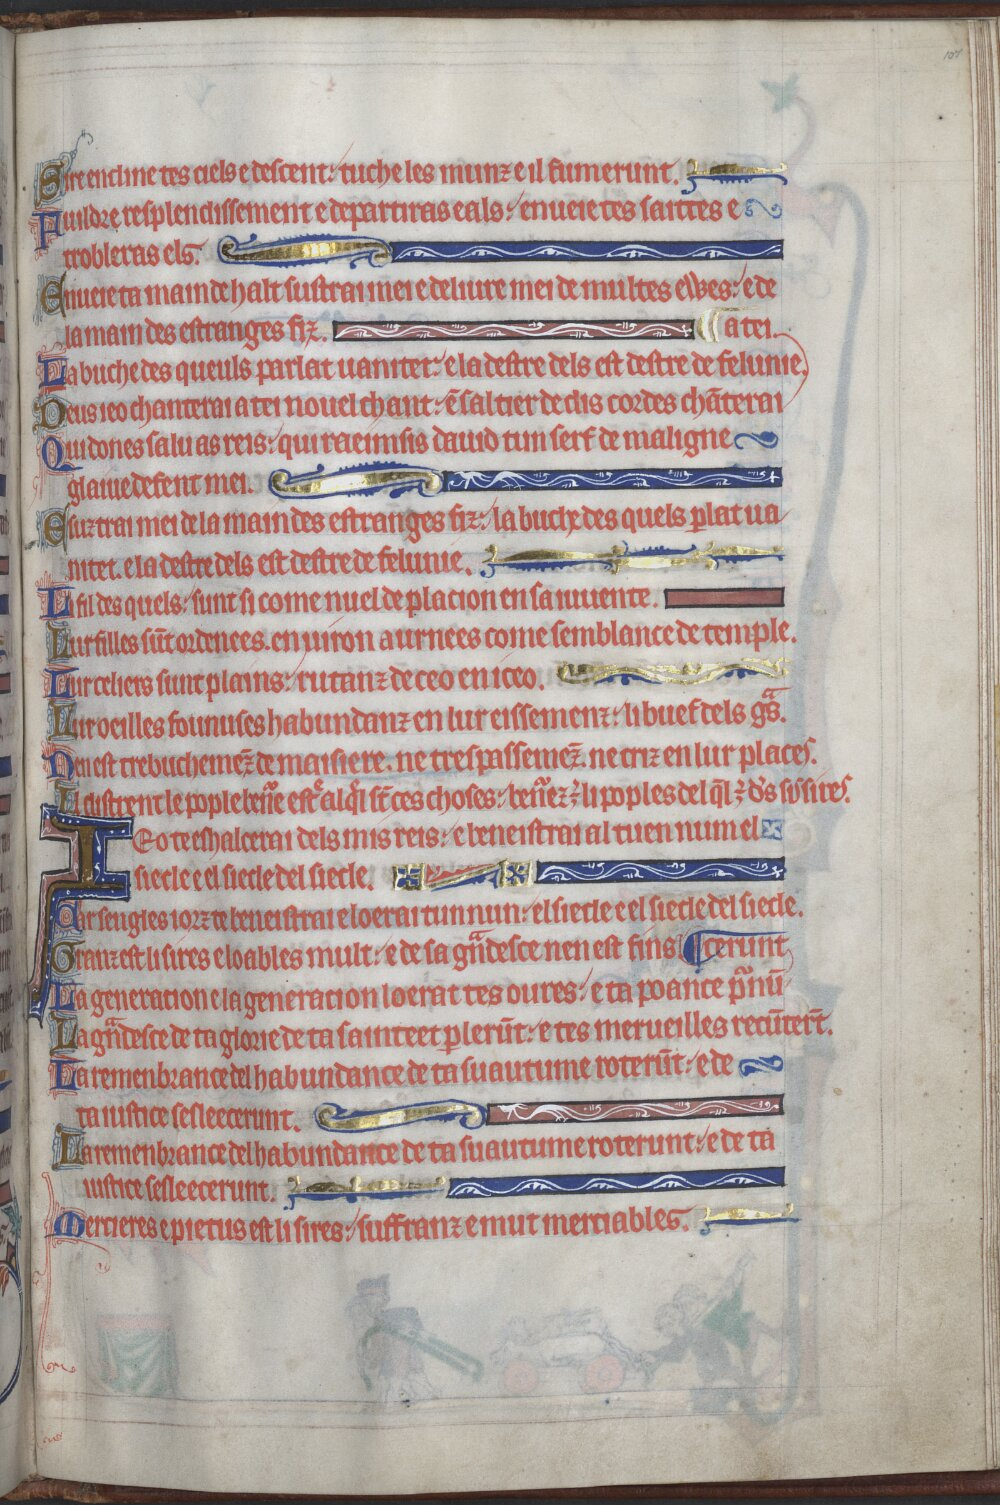 107
Sire encline tes ciels e descent: tuche les munz e il fumerunt.
Fuildre resplendissement e departiras eals: enueie tes saittes e
trobleras els.
Enueie ta main de halt sustrai mei e deliure mei de multes ewes: e de
la main des estranges fiz.
La buche des queuls parlat uanitet: e la destre dels est destre de felunie,
a tei.
Deus ieo chanterai a tei nouel chant: e saltier de dis cordes chãterai
Qui dones salu as reis: qui raeimsis dauid tun serf de maligne
glaiue defent mei.
E suztrai mei de la main des estranges fiz: la buche des quels plat ua
nitet. e la destre dels est destre de felunie.
Li fil des quels: sunt si come nuel de placion en sa iuuente.
Lur filles sũt ordenees. enuiron aurnees come semblance de temple.
Lur celiers sunt plains: rutanz de ceo en iceo.
Lur oeilles founuses habundanz en lur eissemenz: li buef dels gᵃs.
Nen est trebuchemez de maisiere. ne trespassemez. ne criz en lur places.
Il distrent le pople bene est al ql st ces choses: benez li poples del ql
Ieo te eshalcerai dels mis reis: e beneistrai al tuen num el
siecle e el siecle del siecle.
Par sengles iorz te beneistrai e loerai tun nun: el siecle e el siecle del siecle.
Granz est li sires e loables mult: e de sa gᵃndesce nen est fins
La generation e la generation loerat tes oures: e ta poance pnũ
cerunt
La gᵃndesce de ta glorie de ta sainteet plerũt: e tes merueilles recũtert.
La remenbrance del habundance de ta suautume roterũt: e de
ta iustice sesleecerunt.
La remenbrance del habundance de ta suautume roterunt: e de ta
iustice sesleecerunt.
Mercieres e pietus est li sires: suffranz e mut merciables.